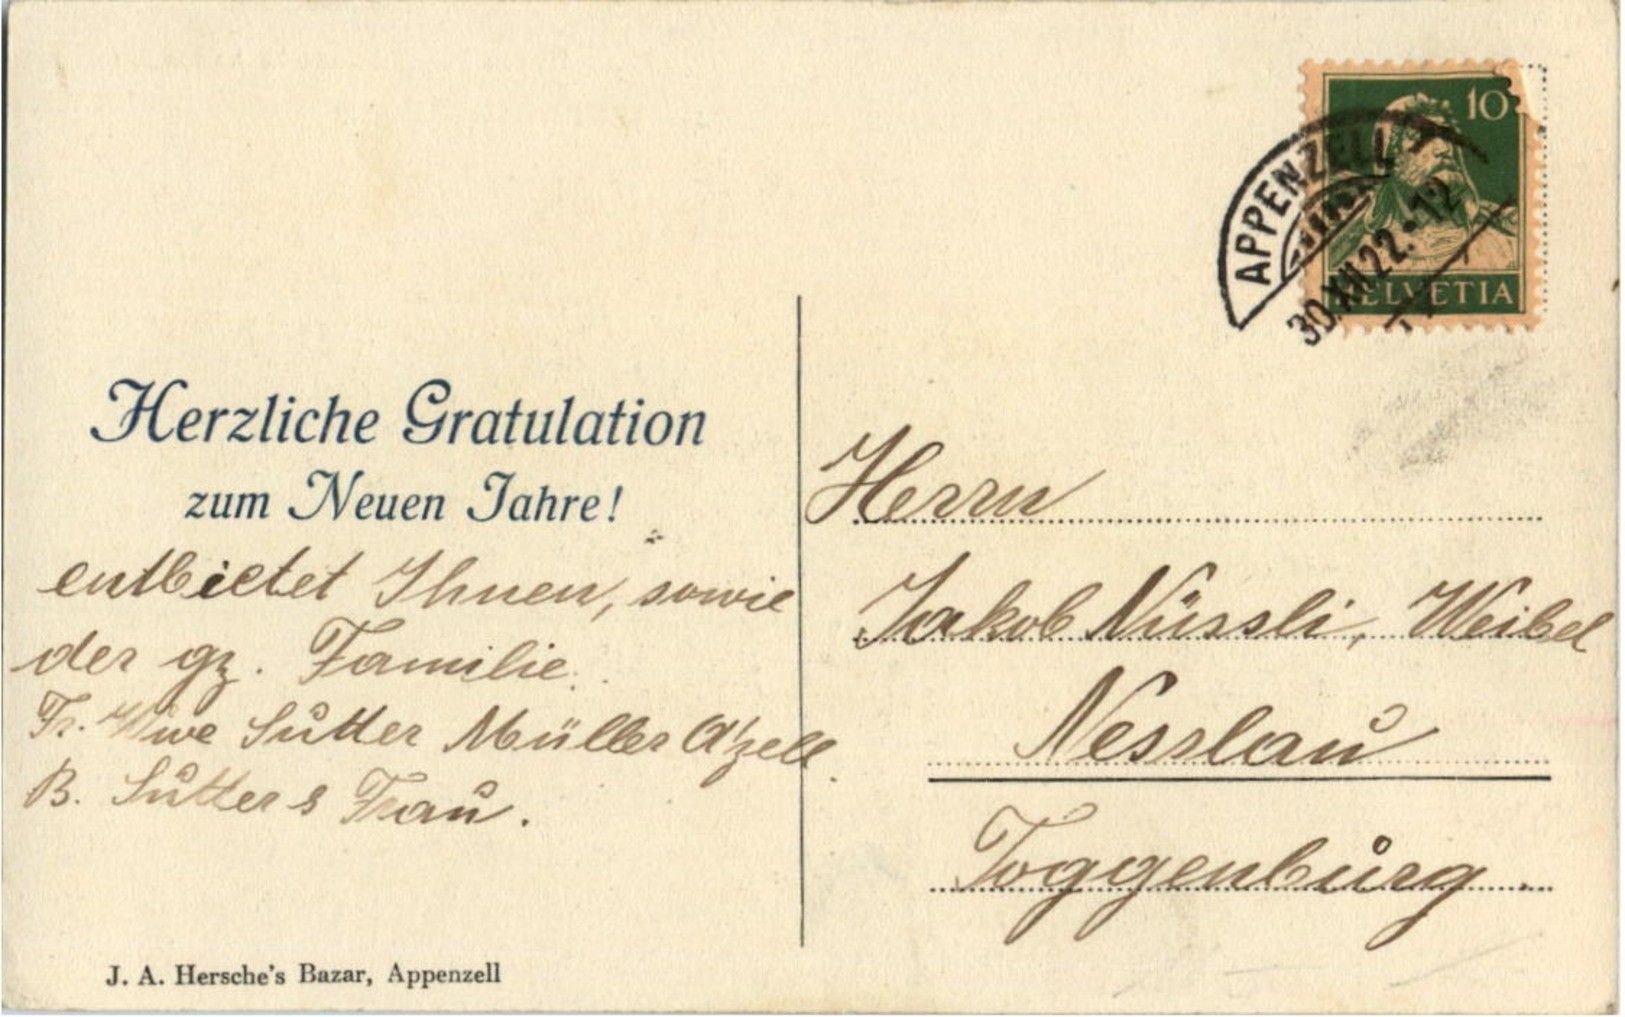 10
APPENZELL
30.XII.22.-12
HELVETIA
Herzliche Gratulation
zum Neuen Jahre!
entbietet Ihnen, sowie
der gz. Familie.
Fr. Wwe Sutter Müller A'zell.
B. Sutter s Frau.
J. A. Hersche's Bazar, Appenzell
Herrn
Jakob Nüssli, Weibel
Nesslau
Toggenburg.